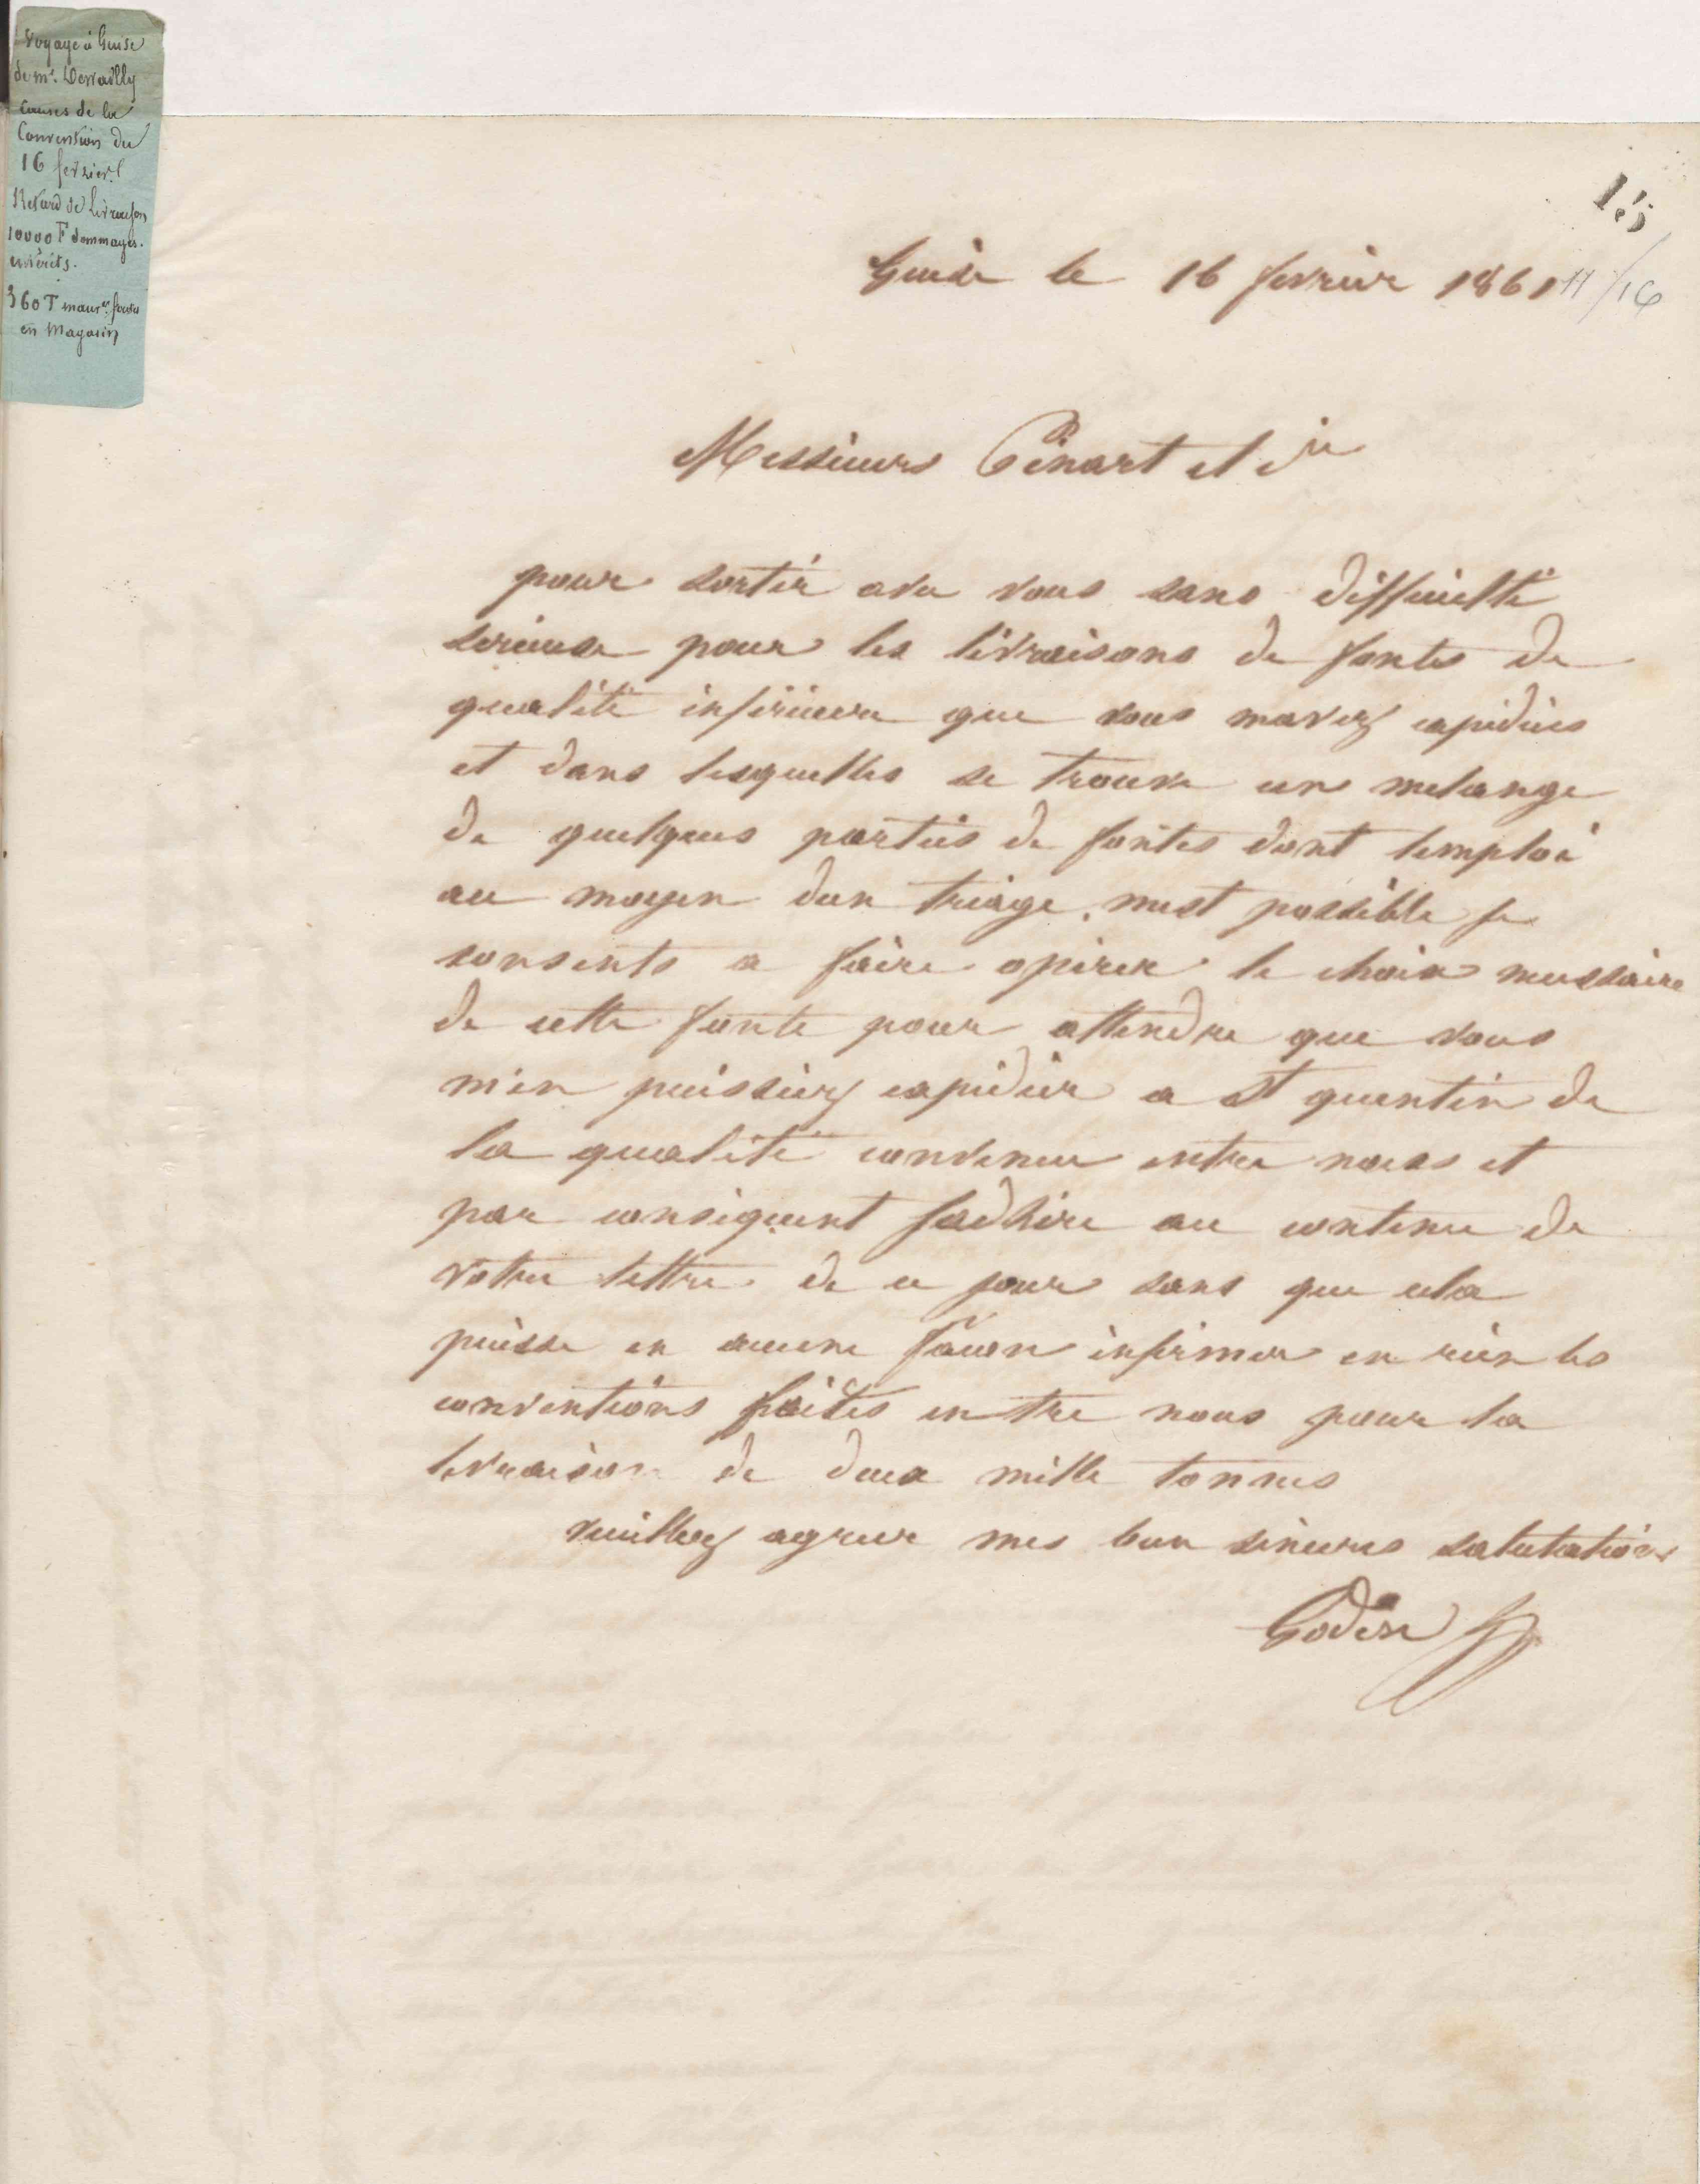 Voyage à Guise
de Mr. Dervailly
Causes de la
Convention du
16 fevrier
Retard de livraison
10000 F dommages.
intérêts.
360 T mauv. fontes
en Magasin
15
Guise le 16 fevrier 1861
11/16
Messieurs Pinart et Cie
pour sortir avec vous sans difficulté
serieuse pour les livraisons de fontes de
qualité inferieure que vous mavez expediées
et dans lesquelles se trouve un melange
de quelques parties de fontes dont lemploi
au moyen dun triage, mest possible je
consents a faire operer le choix necessaire
de cette fonte pour attendre que vous
m'en puissiez expedier a St quentin de
la qualité convenue entre nous et
par consequent jadhere au contenu de
votre lettre de ce jour sans que cela
puisse en aucune facon infirmer en rien les
conventions faites entre nous pour la
livraison de deux mille tonnes
veuillez agreer mes bien sinceres salutations
Godin